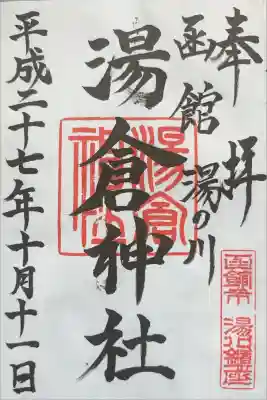 奉拝
函館 湯の川
湯倉神社
湯倉神社
平成二十七年十月十一日
函館市
湯川鎮座